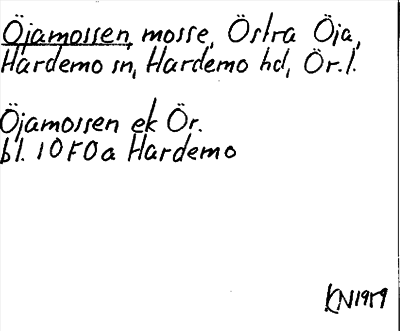 Öjamossen, mosse, Östra Öja,
Hardemo sn, Hardemo hd, Ör.l.
Öjamossen ek Ör.
bl. 10F0a Hardemo
KN1959